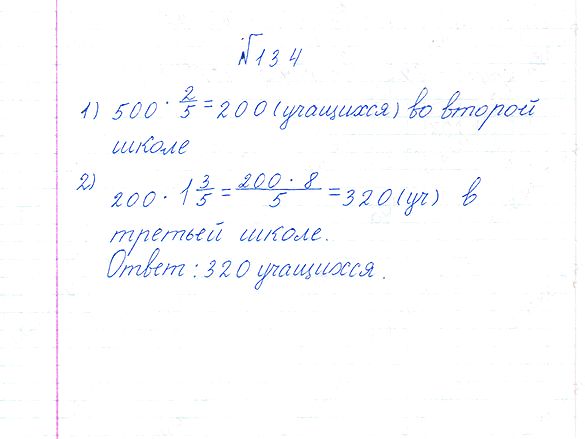 №134
1) 500 · 2/5 = 200 (учащихся) во второй
школе
2) 200 · 1 3/5 = 200 · 8/5 = 320 (уч) в
третьей школе.
Ответ : 320 учащихся.